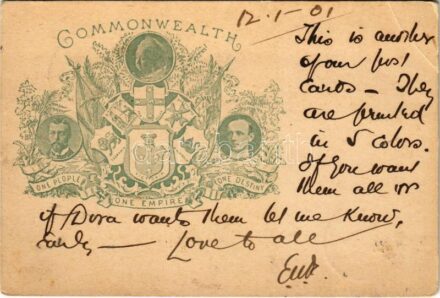 COMMONWEALTH
12.1-01
This is another
of our post
cards — They
are printed
in 5 colors.
If you want
them all or
if Dora wants them let me know,
early — Love to all
ONE PEOPLE
ONE DESTINY
ONE EMPIRE
darabanth